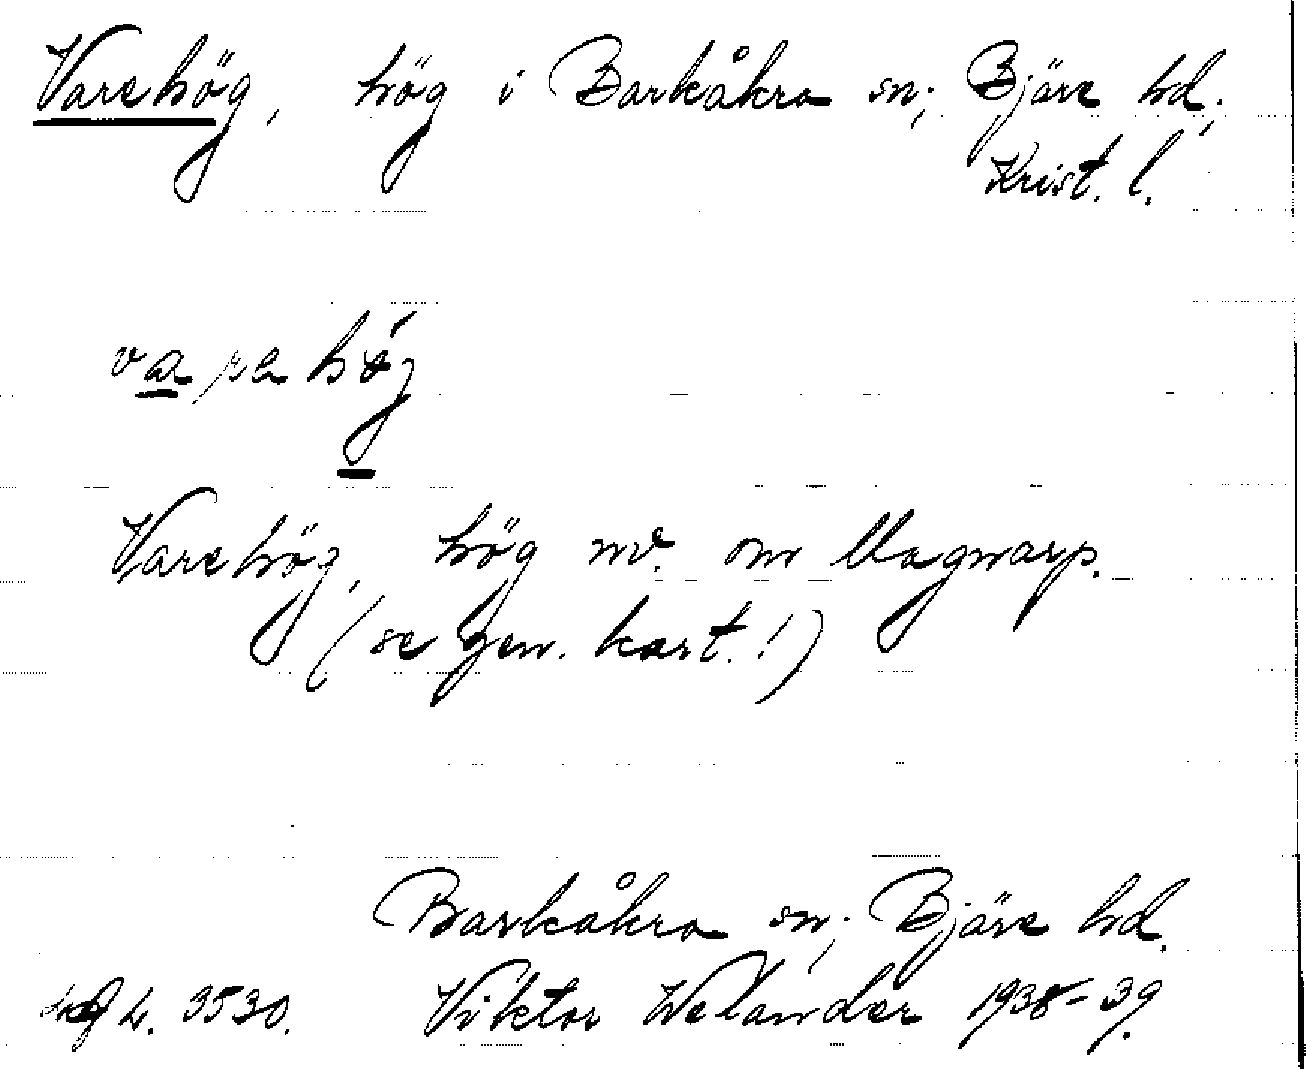 Varehög, hög i Barkåkra sn; Bjäre hd,
Krist. l.
Varehög, hög nv. om Magnarp.
(se gen. kart.!)
Barkåkra sn; Bjäre hd.
4. 3530. Viktor Welander 1938-39.